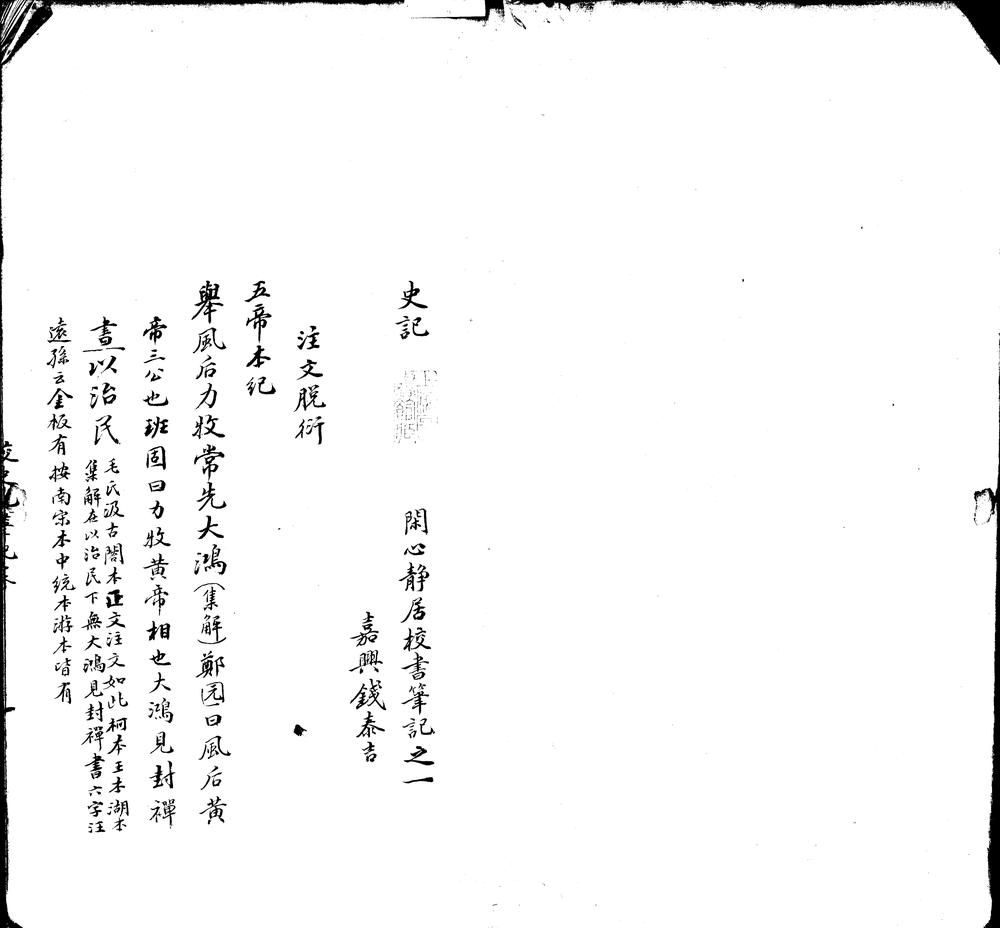 史記 閑心靜居校書筆記之一
嘉興錢泰吉
注文脫衍
五帝本紀
舉風后力牧常先大鴻(集解)鄭园曰風后黃
帝三公也班固曰力牧黃帝相也大鴻見封禪
書以治民 毛氏汲古閣本正文注文如此柯本王本湖本
集解在以治民下無大鴻見封禪書六字汪
遠孫云金板有按南宋本中統本游本皆有